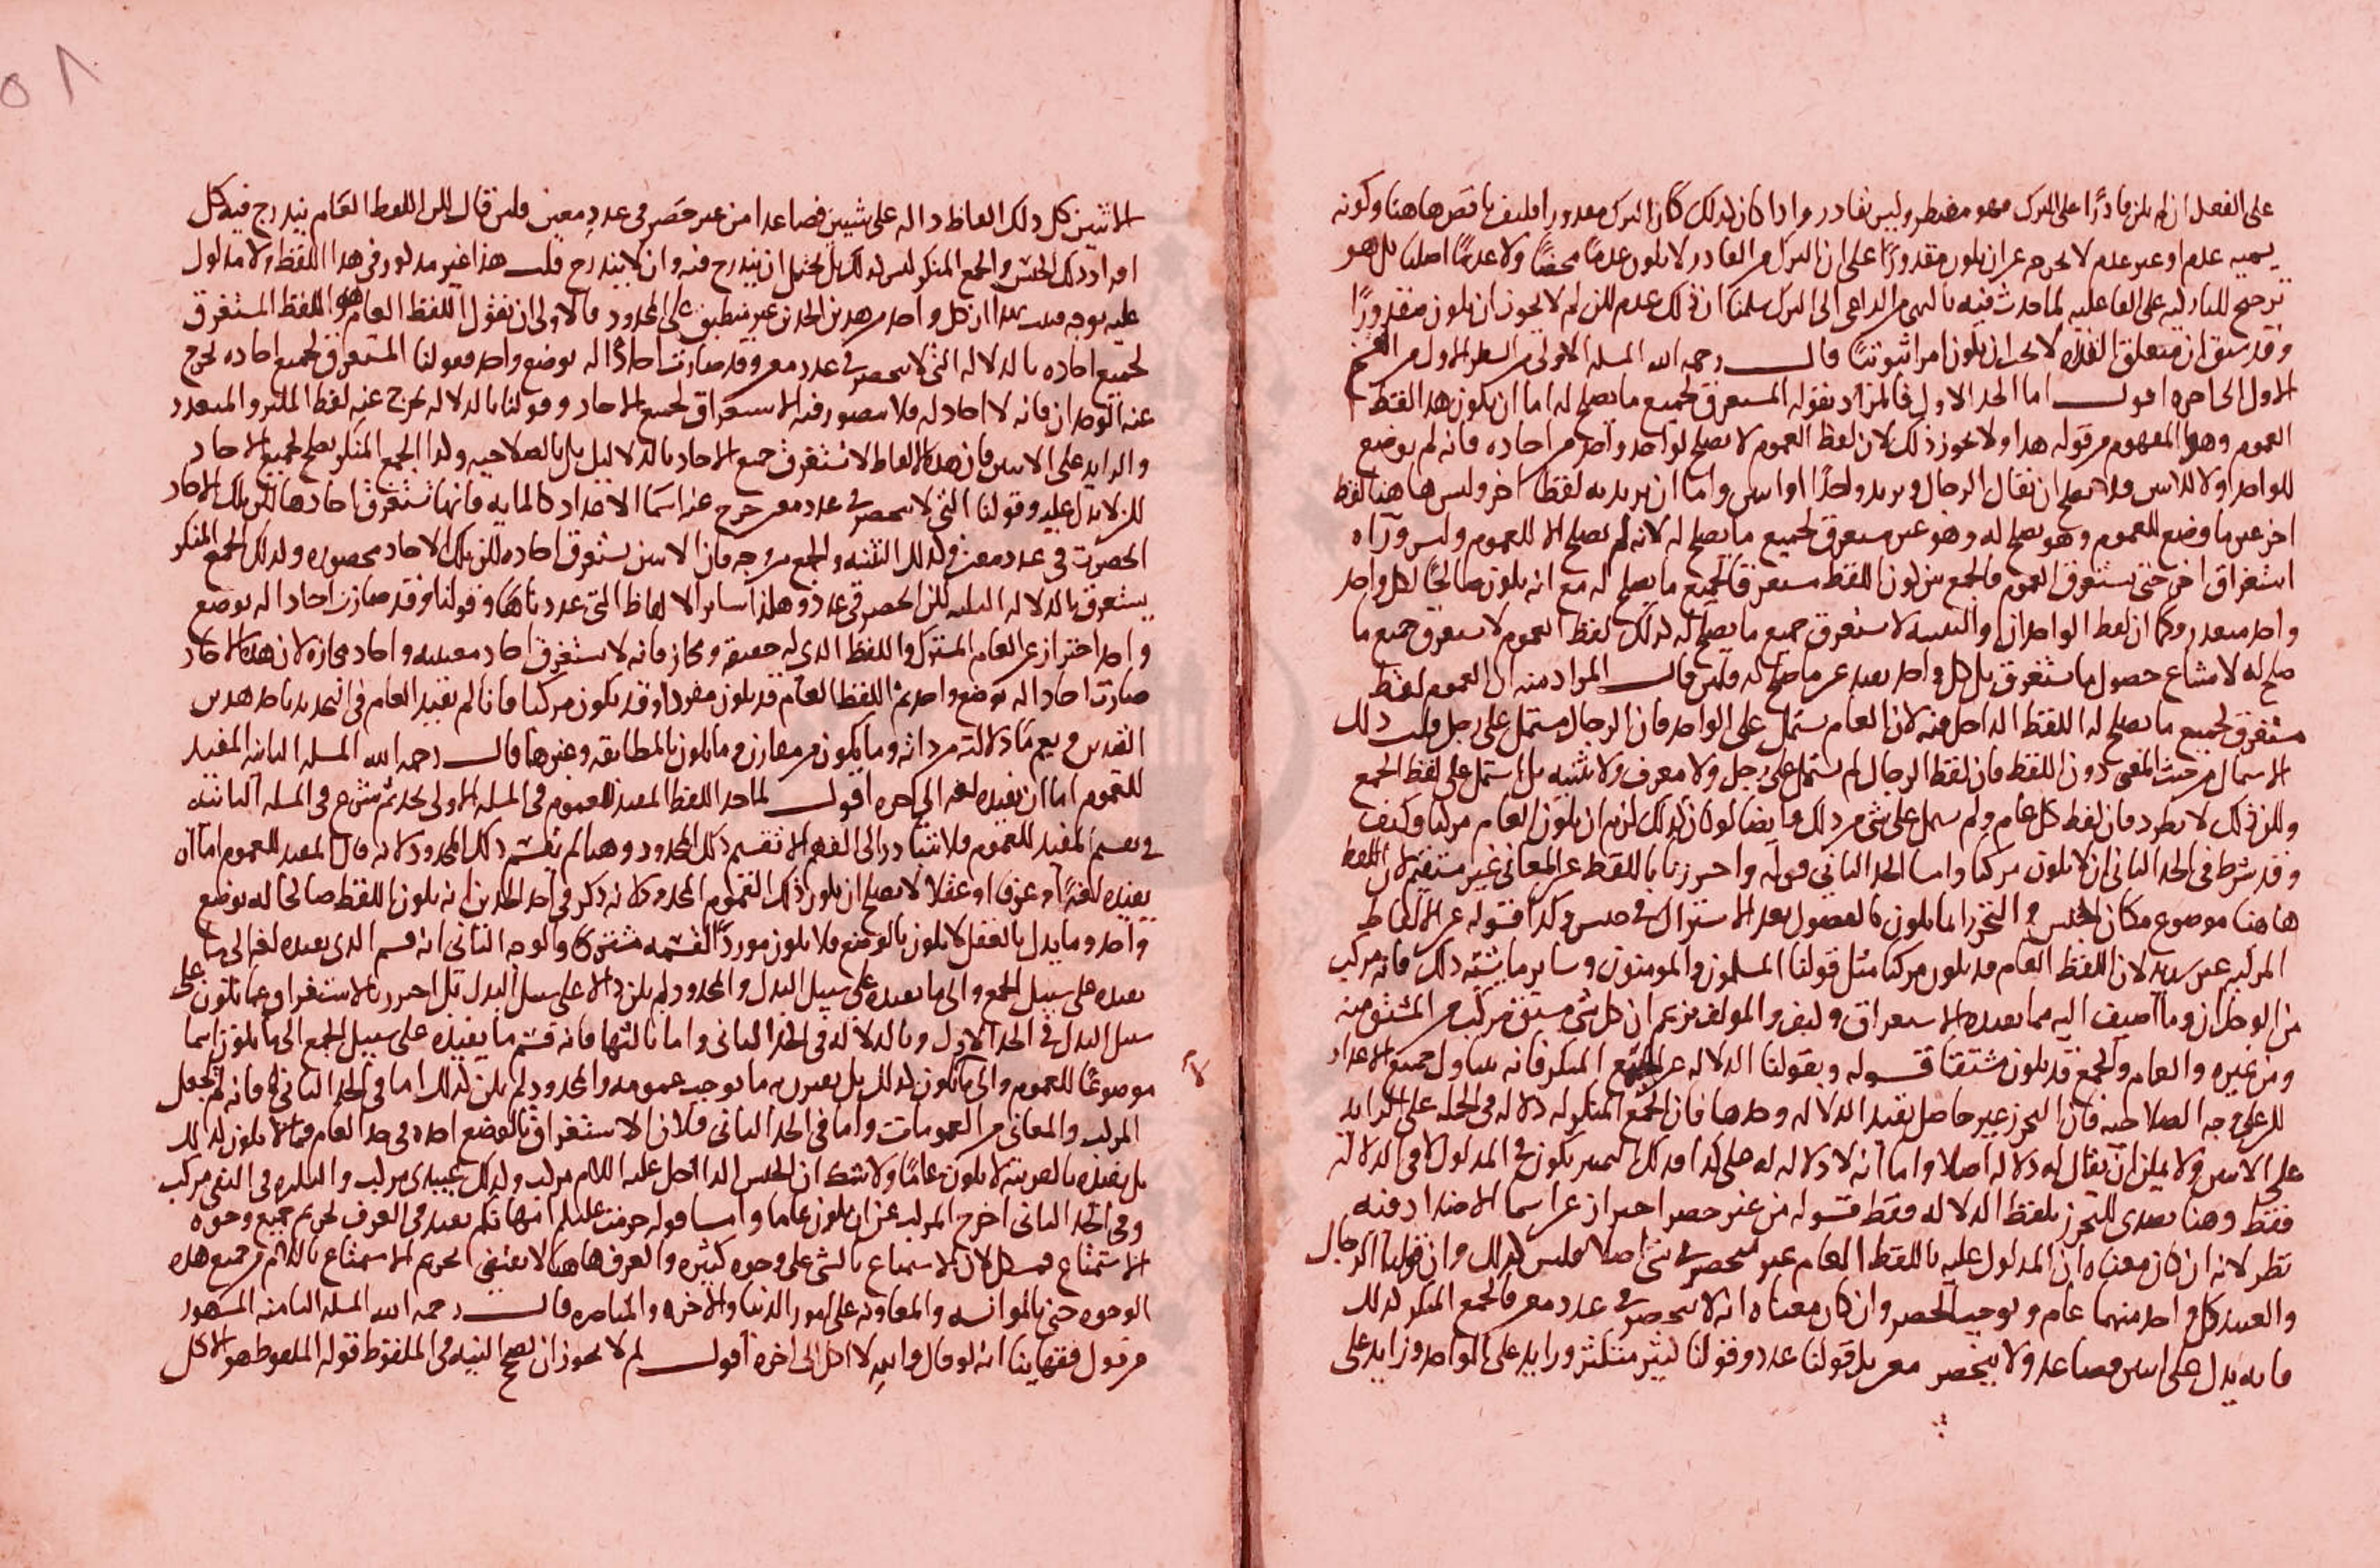 على الفعل ان لم يكن قادرًا على الترك فهو مضطر وليس بقادر واذا كان كذلك كان الترك مقدورا فليف ناقض هاهنا وكونه
يسميه عدم او غير عدم لا يخرجه عن ان يكون مقدورًا على ان الترك من القادر لا يكون عدمًا محضًا ولا عدميًا اصليا بل هو
ترجيح للتاركيه على الفاعليه لما حدث فيه بالنهي من الداعي الى الترك سلمنا ان ذلك عدم لكن لم لا يجوز ان يكون مقدورًا
وقد سبق ان متعلق القدره لا يجب ان يكون امرا ثبوتيًا قال رحمه الله المسله الاولى من الشطر الاول من القسم
الاول الى اخره اقول اما الحد الاول فالمراد بقوله المستغرق لجميع ما يصلح له اما ان يكون هذا اللفظ
العموم وهو المفهوم من قوله هذا ولا يجوز ذلك لان لفظ العموم لا يصلح لواحد واحد من احاده فانه لم يوضع
للواحد ولا للاثنين فلا يصلح ان يقال الرجال ويريد واحدًا او اثنين واما ان يريد به لفظا اخر وليس هاهنا لفظ
اخر غير ما وضع للعموم وهو يصلح له وهو غير مستغرق لجميع ما يصلح له لانه لم يصلح الا للعموم وليس وراه
استغراق اخر حتى يستغرق العموم فالجمع بين كون اللفظ مستغرقا لجميع ما يصلح له مع انه يكون صالحًا لكل واحد
واحد متعذر وكما ان لفظ الواحدان والتثنيه لا يستغرق جميع ما يصلح له كذلك لفظ العموم لا يستغرق جميع ما
صلح له لامتناع حصول ما يستغرق بل كل واحد بعيد عن ما صلح له فلين قال المراد منه ان العموم لفظ
مستغرق لجميع ما يصلح له اللفظ الداخل فيه لان العام يشتمل على الواحد فان الرجال مشتمل على رجل قلت ذلك
الاشتمال من حيث المعنى دون اللفظ فان لفظ الرجال لم يشتمل على رجل ولا معرف ولا تثنيه بل اشتمل على لفظ الجمع
ولكن ذلك لا يطرد فان لفظ كل عام ولم يشتمل على شي من ذلك وايضا لو كان كذلك لزم ان يكون العام مركبا وكيف
وقد شرط في الحد الثاني ان لا يكون مركبا واما الحد الثاني قوله واحترزنا باللفظ عن المعاني غير مستقيم لان اللفظ
هاهنا موضوع مكان الجنس والتحرز انما يكون بالفصول بعد الاشتراك في جنس وكذا قوله عن الالفاظ
المركبه غير سديد لان اللفظ العام قد يكون مركبا مثل قولنا المسلمون والمومنون وساير ما يشبه ذلك فانه مركب
من الوحدان وما اضيف اليه مما يفيده الاستغراق وليف والمولف يزعم ان كل شي مشتق مركب من المشتق منه
ومن غيره والعام والجمع قد يكون مشتقا قوله وبقولنا الدلاله عن الجمع المنكر فانه يتناول جميع الاعداد
لكن على وجه الصلاحيه فان التحرز غير حاصل بقيد الدلاله وحدها فان الجمع المنكر له دلاله في الجمله على الزايد
على الاثنين ولا يمكن ان يقال له دلاله اصلا واما انه لا دلاله له على كذا فذلك تمييز يكون في المدلول لا في الدلاله
فقط وهنا تصدى للتحرز بلفظ الدلاله فقط قوله من غير حصر احتراز عن اسما الاعداد فيه
نظر لانه ان كان معناه ان المدلول عليه باللفظ العام غير منحصر في شي اصلا فليس كذلك وان قلنا الرجال
والعبيد كل واحد منهما عام ويوجب الحصر وان كان معناه انه لا ينحصر في عدد معين فالجمع المنكر كذلك
فانه يدل على اثنين فصاعدا ولا ينحصر معين بل قولنا عدد وقولنا كثير متكثر وزايد على الواحد وزايد على
الاثنين كل ذلك الفاظ داله على شيئين فصاعدا من غير حصر في عدد معين فلين قال لكن اللفظ العام يندرج فيه كل
افراد ذلك الجنس والجمع المنكر ليس كذلك بل يحتمل ان يندرج فيه وان لا يندرج قلت هذا غير مذكور في هذا اللفظ ولا مدلول
عليه بوجه فثبت بهذا ان كل واحد من هذين الحدين غير منطبق على المحدود فالاولى ان نقول اللفظ العام هو اللفظ المستغرق
لجميع احاده بالدلاله التي لا تنحصر في عدد معين وقد صارت احادًا له بوضع واحد فقولنا المستغرق لجميع احاده يخرج
عنه الوحدان فانه لا احاد له فلا يتصور فيه الاستغراق لجميع الاحاد وقولنا بالدلاله يخرج عنه لفظ الكثير والمتعدد
والزايد على الاثنين فان هذه الالفاظ لا تستغرق جميع الاحاد بالدلاله بل بالصلاحيه ولذا الجمع المنكر يصلح لجميع الاحاد
لكن لا يدل عليه وقولنا التي لا تنحصر في عدد معين خرج عنه اسما الاعداد كالمايه فانها تستغرق احادها لكن تلك الاحاد
انحصرت في عدد معين وكذلك التثنيه والجمع من وجه فان الاثنين يستغرق احاده لكن تلك الاحاد محصوره وكذلك الجمع المنكر
يستغرق بالدلاله الثلثه لكن انحصر في عدد وهكذا ساير الالفاظ التي عددناها وقولنا وقد صارت احادا له بوضع
واحد احتراز عن العام المشترك واللفظ الذي له حقيقه ومجاز فانه لا يستغرق احاد معنييه واحاد مجازه لان هذه الاحاد
صارت احادا له بوضع واحد ثم اللفظ العام قد يكون مفردا وقد يكون مركبا فانا لم نقيد العام في التحديد باحد هذين
القيدين ويعم ما دلالته من ذاته وما يكون من مقارن وما يكون بالمطابقه وغيرها قال رحمه الله المسله الثانيه المفيد
للعموم اما ان يفيده لغه الى اخره اقول لما حد اللفظ المفيد للعموم في المسله الاولى بحد ثم شرع في المسله الثانيه
في تقسيم المفيد للعموم فلا يتبادر الى الفهم الا تقسيم ذلك المحدود وهنا لم يقسم ذلك المحدود لانه قال المفيد للعموم اما ان
يفيده لغة او عرفا او عقلا لا يصلح ان يكون ذلك العموم المحدود لانه ذكر في احد الحدين انه يكون اللفظ صالحا له بوضع
واحد وما يدل بالعقل لا يكون بالوضع فلا يكون موردًا القسمه مشتركا والوجه الثاني انه قسم الذي يفيده لغه الى ما
يفيده على سبيل الجمع والى ما يفيده على سبيل البدل والمحدود لم يكن دالا على سبيل البدل بل احترز بالاستغراق عما يكون على
سبيل البدل في الحد الاول وبالدلاله في الحد الثاني واما ثالثها فانه قسم ما يفيده على سبيل الجمع الى ما يكون اسما
موضوعًا للعموم والى ما يكون كذلك بل يقترن به ما يوجب عمومه والمحدود لم يكن كذلك اما في الحد الثاني فانه لم يجعل
المركب والمعاني من العمومات واما في الحد الثاني فلان الاستغراق بالوضع اخذه في حد العام فما لا يكون كذلك
بل يفيده بالقرينه لا يكون عامًا ولا شك ان الجنس اذا دخل عليه اللام مركب وكذلك عبيدي مركب والنكره في النفي مركب
وفي الحد الثاني اخرج المركب عن ان يكون عاما واما قوله حرمت عليكم امهاتكم يفيد في العرف تحريم جميع وجوه
الاستمتاع فمشكل لان الاستمتاع بالشي على وجوه كثيره والعرف هاهنا لا يقتضي تحريم الاستمتاع بالام من جميع هذه
الوجوه حتى بالموانسه والمعاونه على امور الدنيا والاخره والمناصره قال رحمه الله المسله الثامنه المشهور
من قول فقهاينا انه لو قال والله لا اكل الى اخره اقول لم لا يجوز ان تصح النيه في الملفوظ قوله الملفوظ هو الاكل
٥٨